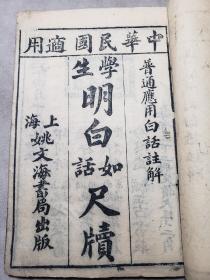 中華民國適用
普通應用白話註解
學生明白如話尺牘
上海姚文海書局出版